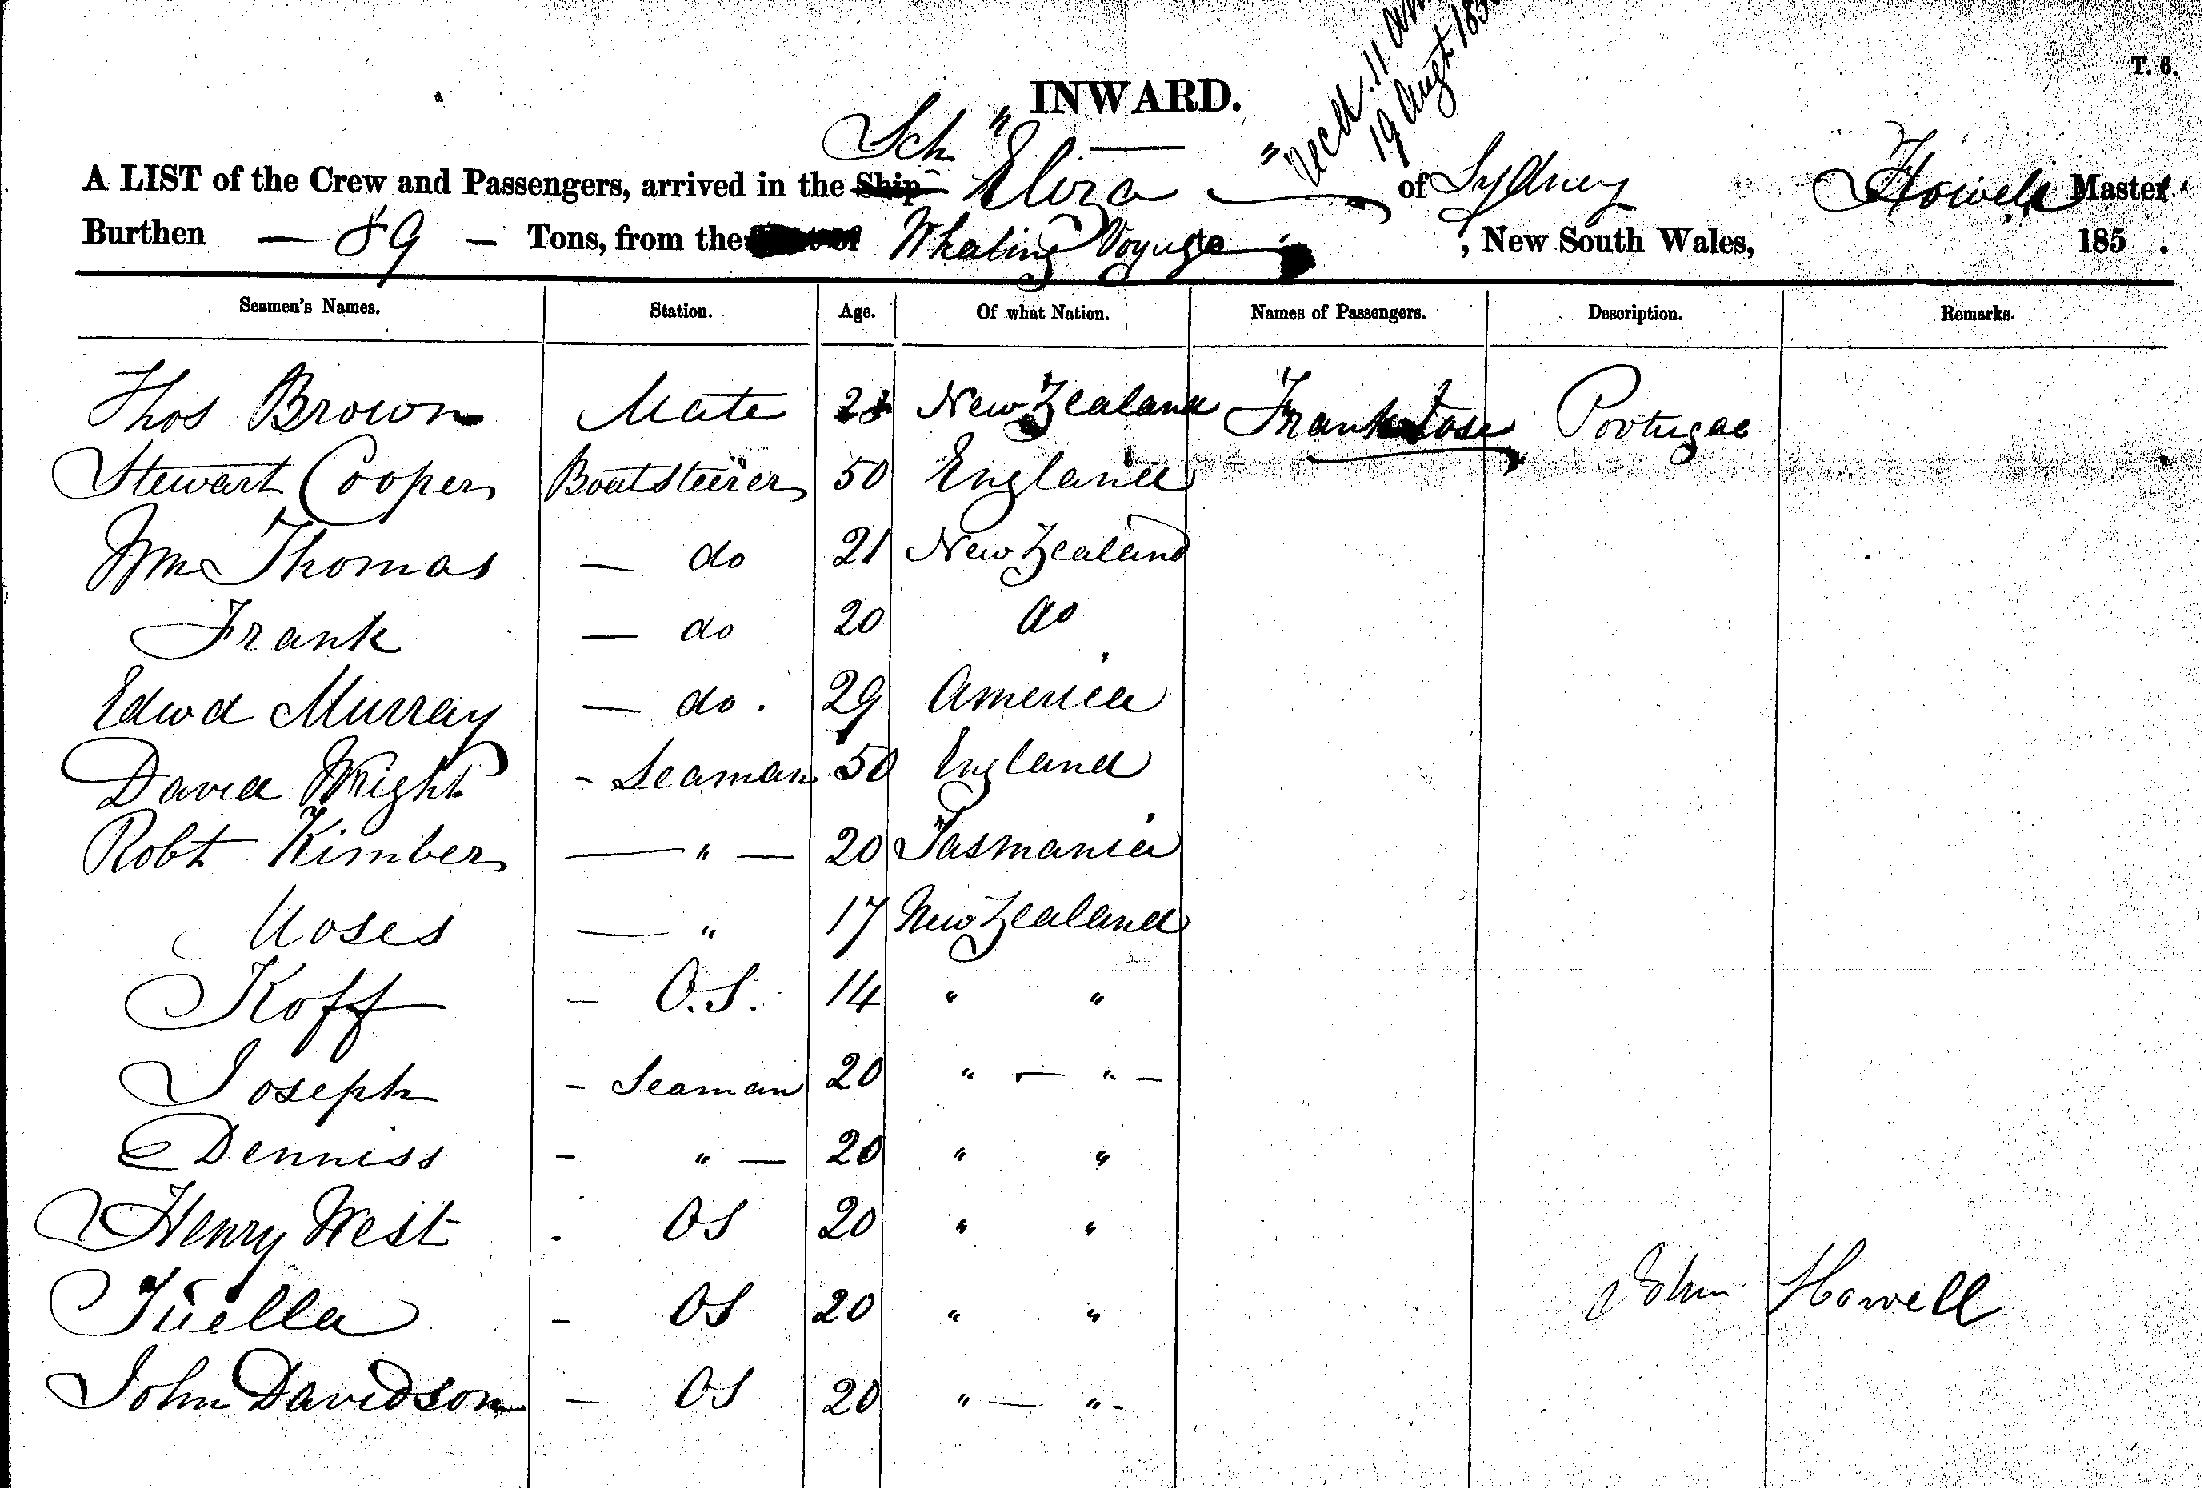 T. 6.
Recd. 11 am
19 Augt 185
INWARD.
Sch "
A LIST of the Crew and Passengers, arrived in the Ship Eliza " of Sydney Howell Master
Burthen — 89 — Tons, from the Whaling Voyage , New South Wales, 185 .
Seamen's Names. Station. Age. Of what Nation. Names of Passengers. Description. Remarks.
Thos Brown Mate New Zealand Frank Jose Portugal
Stewart Cooper Boatsteerer 50 England
Wm Thomas — do 21 New Zealand
Frank — do 20 do
Edwd Murray — do . 29 America
David Wright - Seaman 50 England
Robt Kimber — " — 20 Tasmania
Moses — " 17 New Zealand
Koff — O.S. 14 " "
Joseph - Seaman 20 " — " —
Denniss - " — 20 " "
Henry West - OS 20 " "
Tuella - OS 20 " "
John Howell
John Davidson — OS 20 " — " -